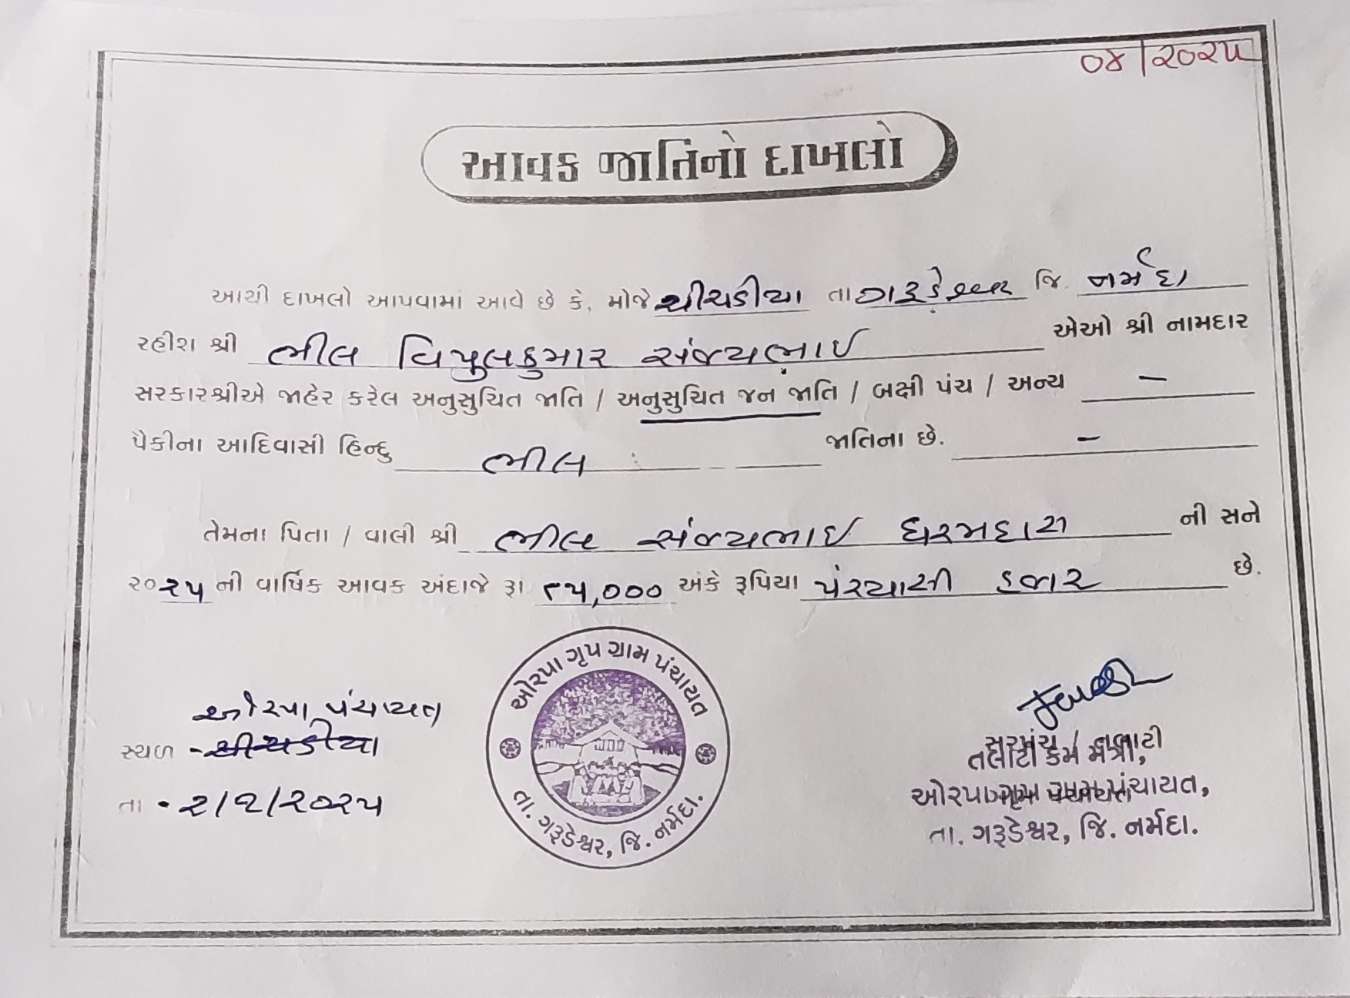 ૦૪/૨૦૨૫
આવક જાતિનો દાખલો
આથી દાખલો આપવામાં આવે છે કે, મોજે ચીચડીયા તા ગરૂડેશ્વર જિ. નર્મદા
રહીશ શ્રી ભીલ વિપુલકુમાર સંજયભાઈ એઓ શ્રી નામદાર
સરકારશ્રીએ જાહેર કરેલ અનુસુચિત જાતિ / અનુસુચિત જન જાતિ / બક્ષી પંચ / અન્ય —
પૈકીના આદિવાસી હિન્દુ ભીલ જાતિના છે. —
તેમના પિતા / વાલી શ્રી ભીલ સંજયભાઈ ધરમદાસ ની સને
૨૦૨૫ ની વાર્ષિક આવક અંદાજે રૂા ૯૫,૦૦૦ અંકે રૂપિયા પંચ્યાસી હજાર છે.
ઓરપા પંચાયત
સ્થળ - ચીચડીયા
તા - ૨/૧/૨૦૨૫
ઓરપા ગૃપ ગ્રામ પંચાયત
તા. ગરૂડેશ્વર, જિ. નર્મદા.
સરપંચ / તલાટી
તલાટી કમ મંત્રી,
ઓરપા ગૃપ ગ્રામ પંચાયત,
તા. ગરૂડેશ્વર, જિ. નર્મદા.